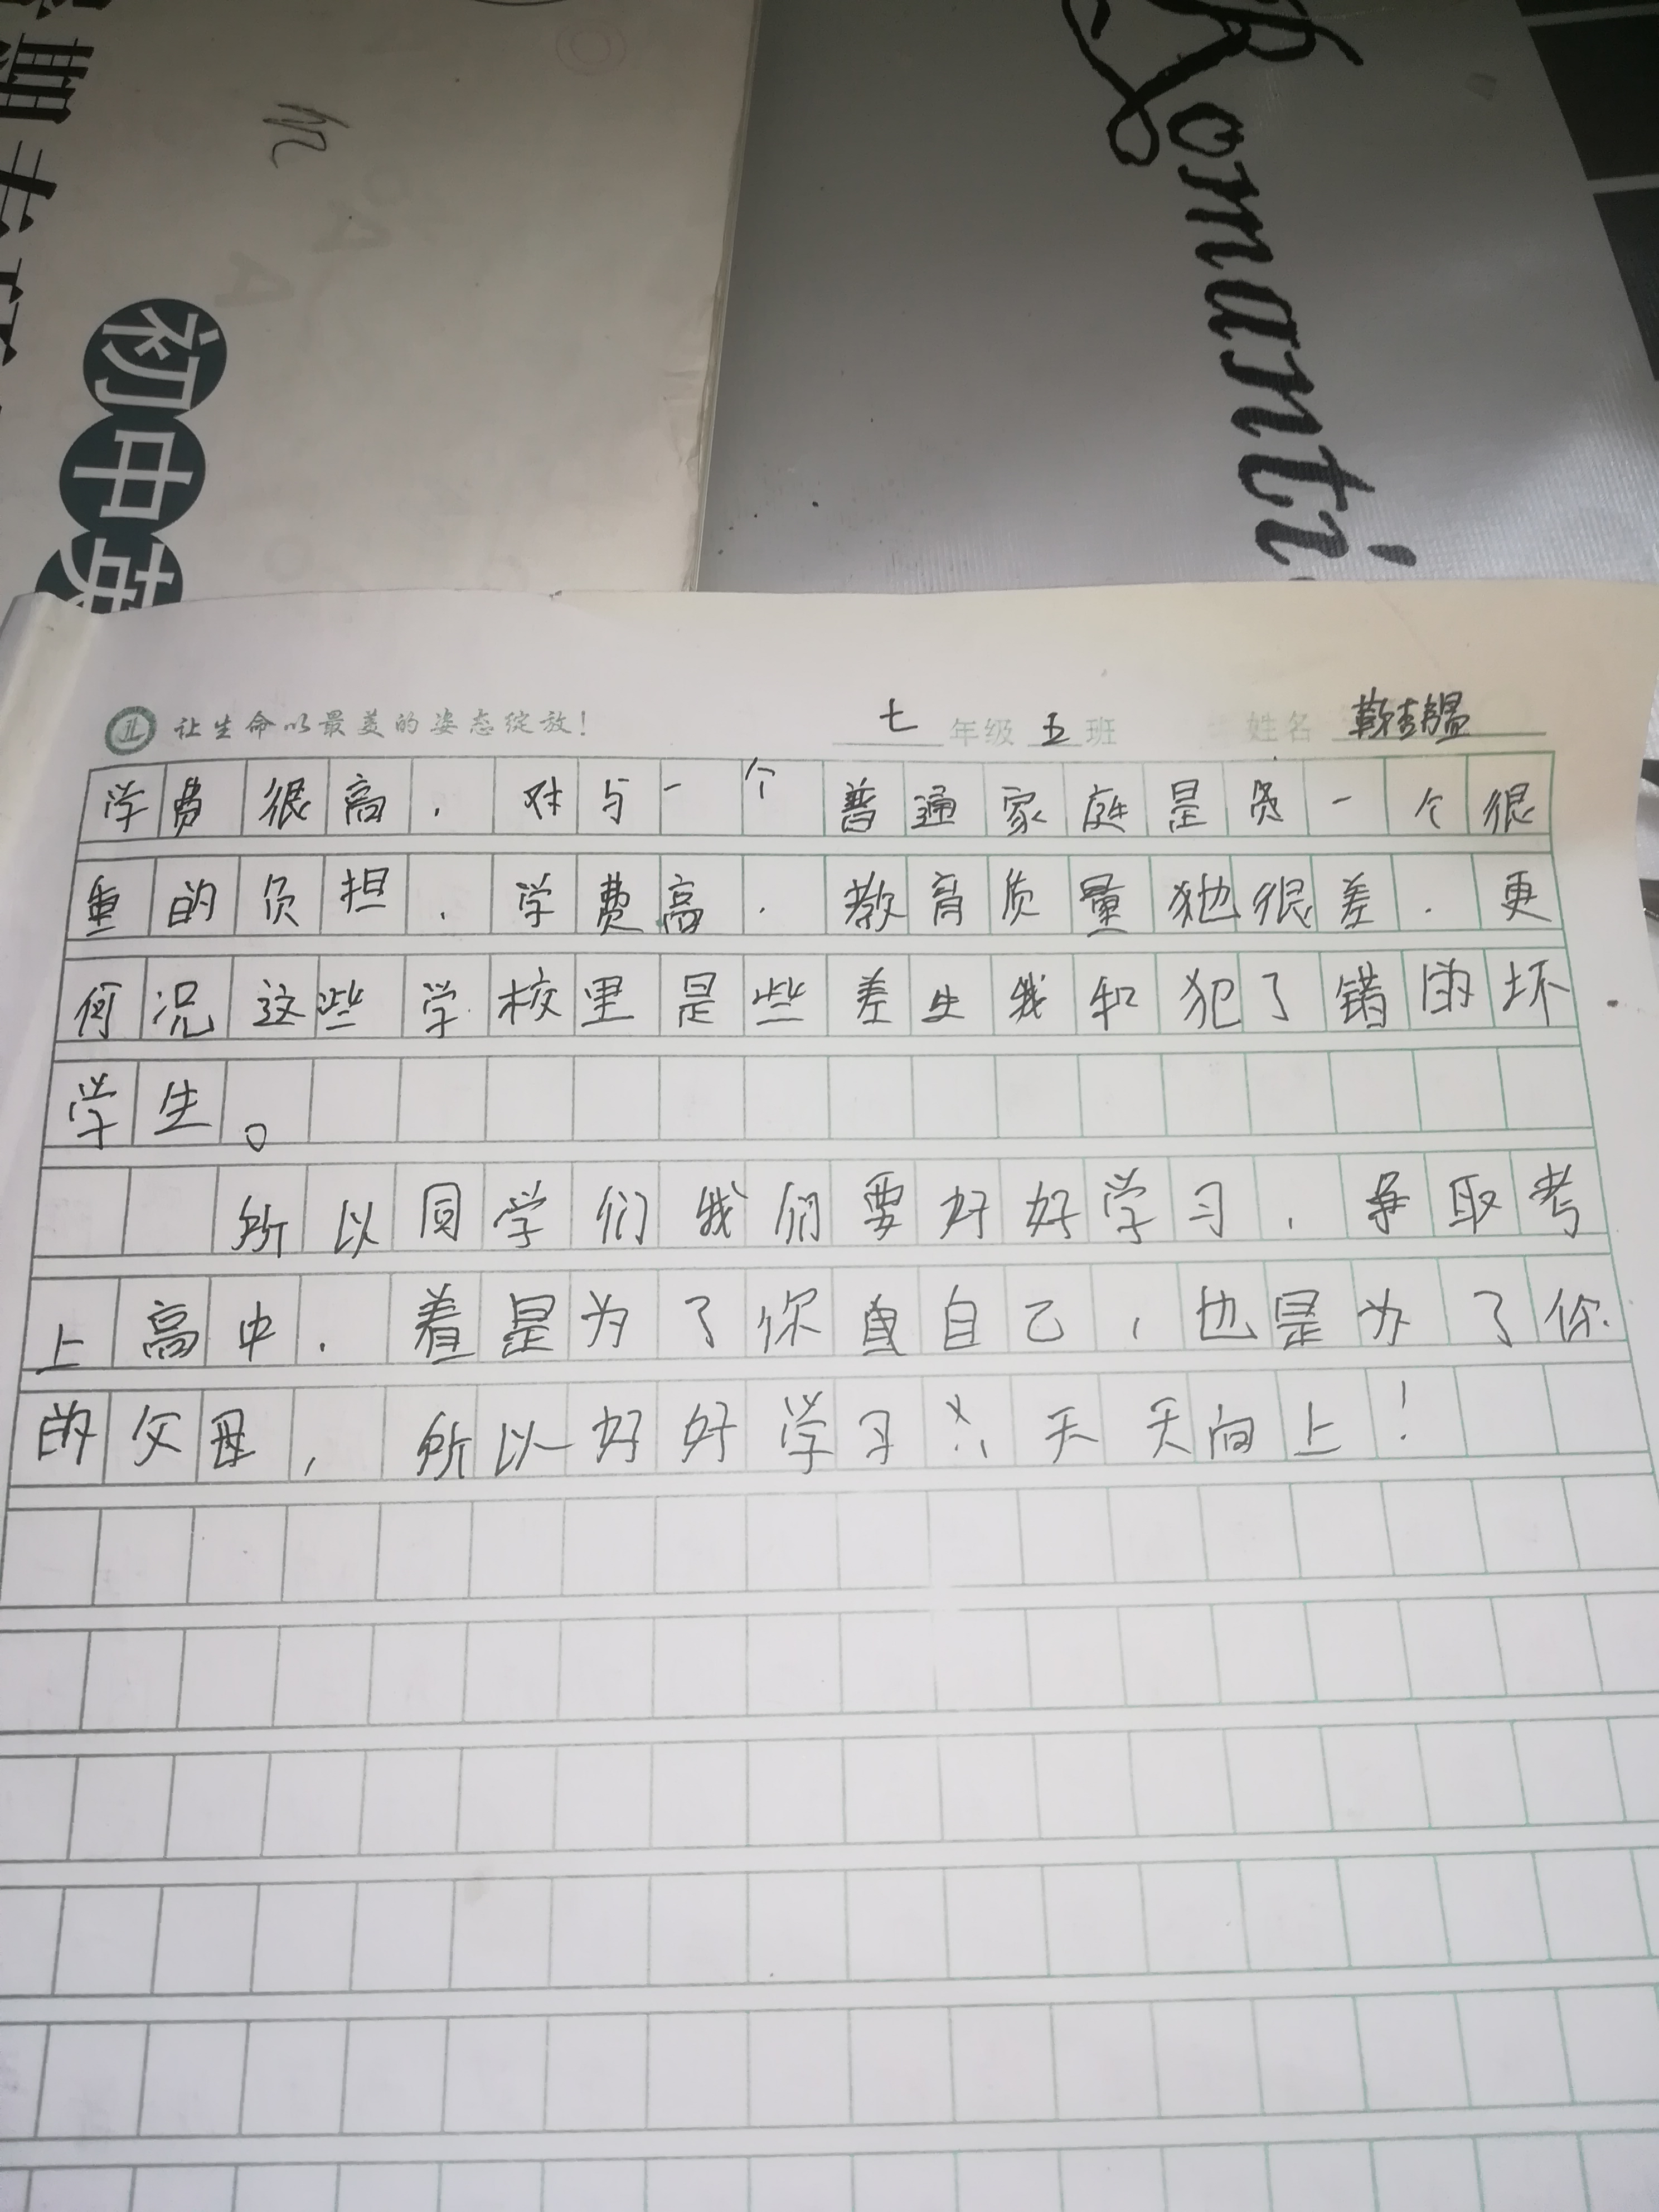 初中英
Romanti
让生命以最美的姿态绽放!
七年级五班 姓名
学费很高.对与一个普通家庭是一个很
重的负担.学费高.教育质量也很差.更
何况这些学校里是些差生我和犯了错的坏
学生。
所以同学们我们要好好学习,争取考
上高中.着是为了你自己,也是为了你
的父母,所以好好学习天天向上!